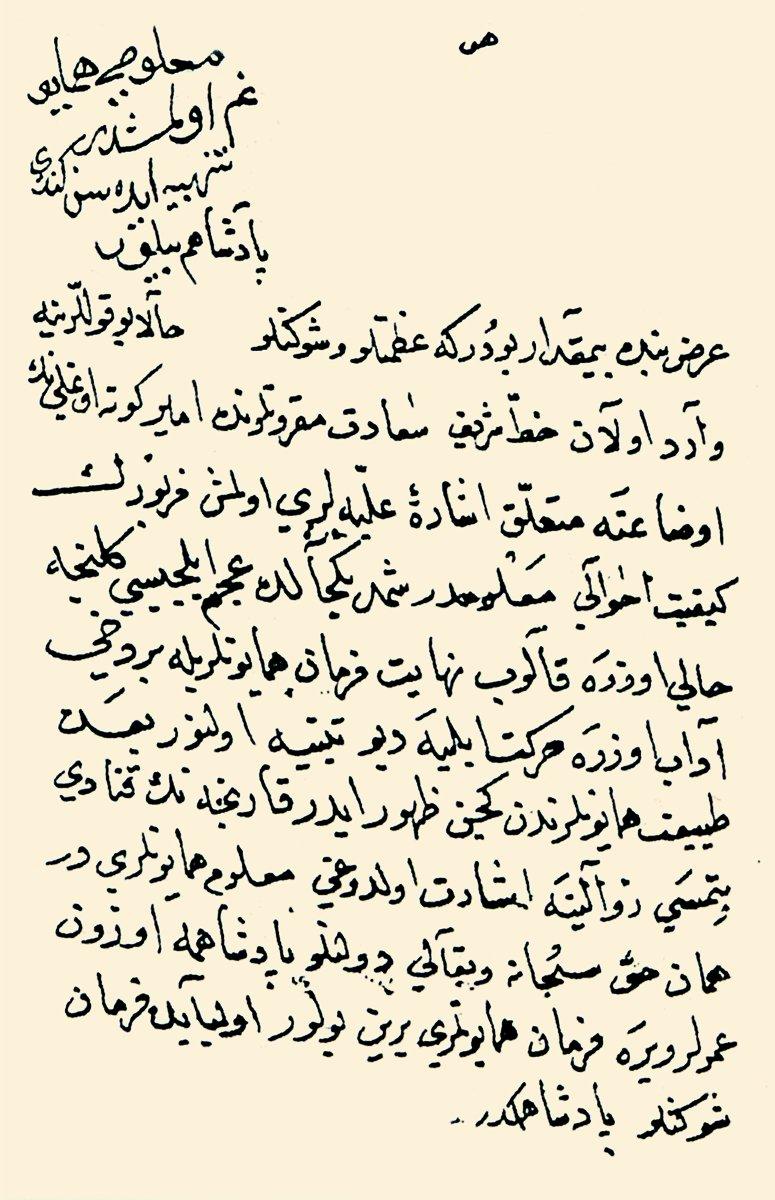 هو
معلوم همايونم
اولمشدر
تنبيه ايده سن كندى
پادشاهم
عرض بنده بيمقدار بودركه عظمتلو وشوكتلو
حالا بو قوللرينه
وارد اولان خطّ شريف سعادت مقرونلرنده امير كونه اوغلى نك
اوضاعنه متعلّق اشارهٔ عليّه لرى اولمش
كيفيت احوالى معلوممدر عجم ايلجيسى كلنجه
حالى اوزره قالوب نهايت فرمان همايونلريله بر دخى
آداب اوزره حركت ايليه ديو تنبيه اولنور بعده
طبيعت همايونلرندن كچن ظهور ايدر قارنجه نك قنادى
بتمسى زوالينه اشارت اولدوغى معلوم همايونلرى در
همان حق سبحانه وتعالى دولتلو پادشاهمه اوزون
عمرلر ويره فرمان همايونلرى يرين بولور فرمان
شوكتلو پادشاهمكدر